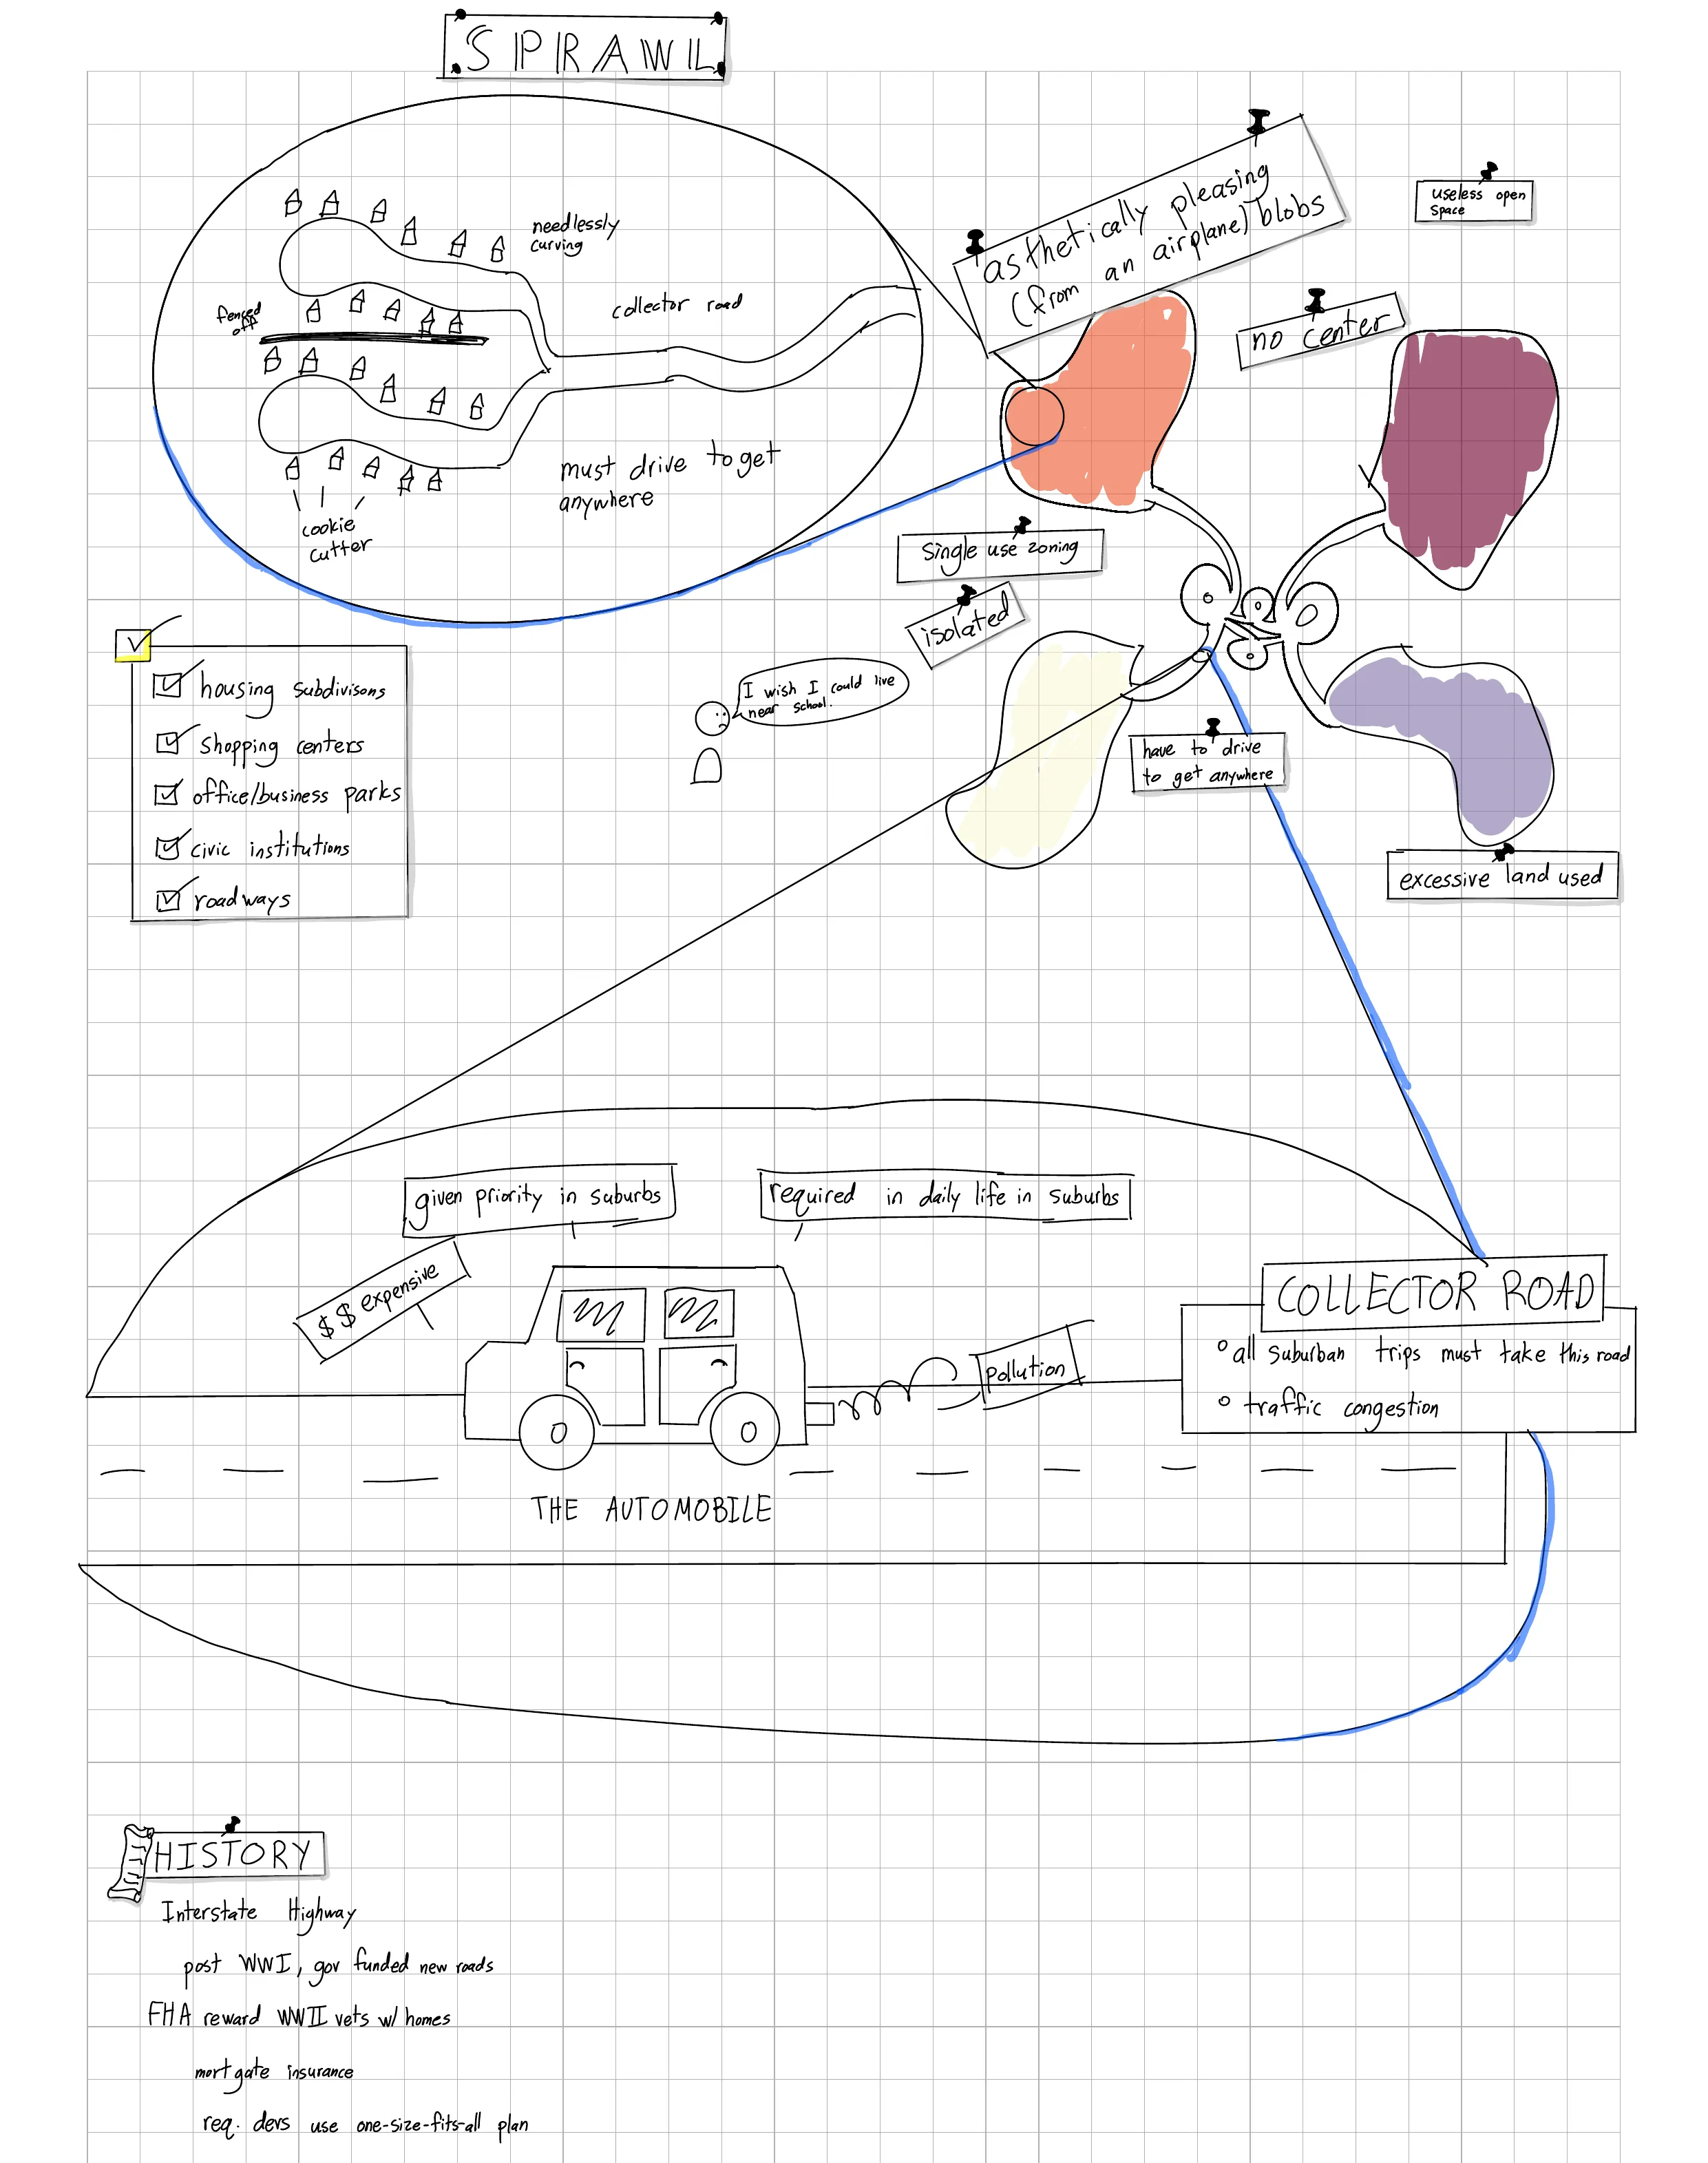 SPRAWL
asthetically pleasing
(from an airplane) blobs
useless open
space
needlessly
curving
collector road
fenced
off
no center
must drive to get
anywhere
cookie
cutter
single use zoning
isolated
I wish I could live
near school.
housing subdivisons
shopping centers
office/business parks
civic institutions
roadways
have to drive
to get anywhere
excessive land used
given priority in suburbs
required in daily life in suburbs
$$ expensive
pollution
COLLECTOR ROAD
all suburban trips must take this road
traffic congestion
THE AUTOMOBILE
HISTORY
Interstate Highway
post WWI, gov funded new roads
FHA reward WWII vets w/ homes
mortgate insurance
req. devs use one-size-fits-all plan